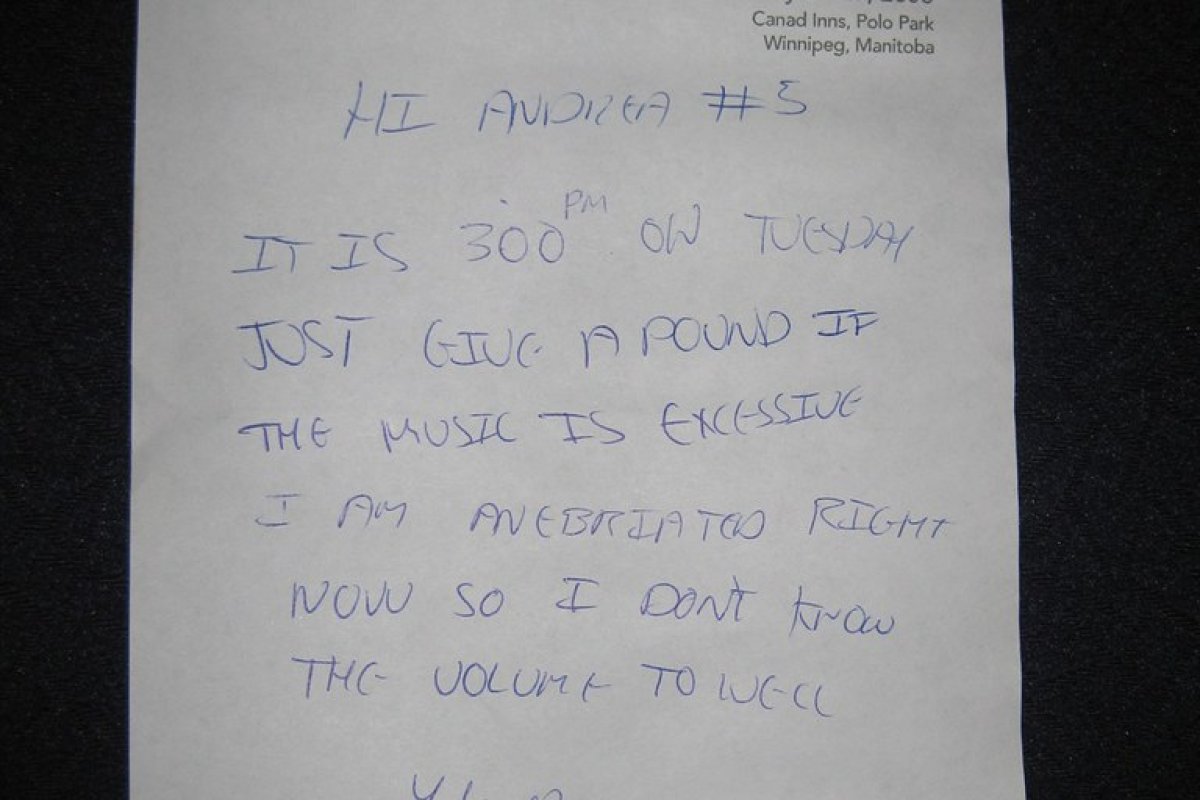 Canad Inns, Polo Park
Winnipeg, Manitoba
HI ANDREA #5
IT IS 300 PM ON TUESDAY
JUST GIVE A POUND IF
THE MUSIC IS EXCESSIVE
I AM ANEBRIATED RIGHT
NOW SO I DON'T KNOW
THE VOLUME TO WELL